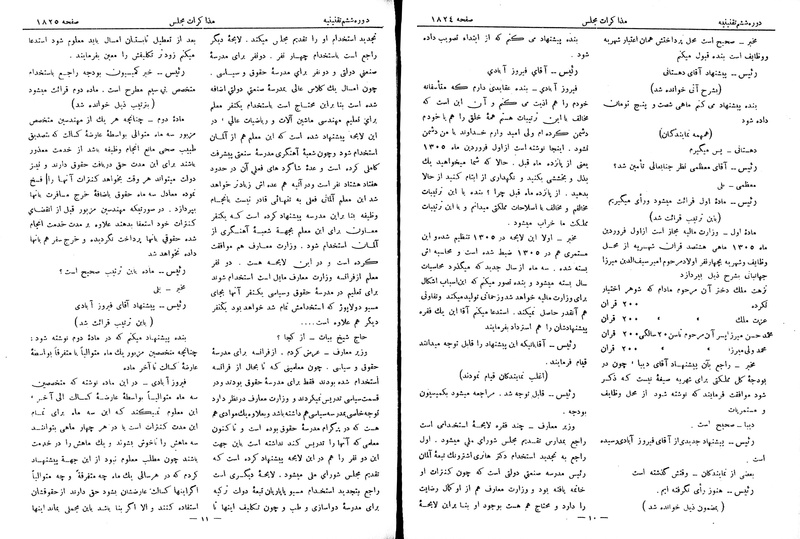 دوره ششم تقنینیه
مذاکرات مجلس
صفحه ۱۸۲۴
مخبر – صحیح است محل پرداختش همان اعتبار شهریه
ووظایف است بنده قبول میکنم
رئیس – پیشنهاد آقای دهستانی
(بشرح آتی خوانده شد)
بنده پیشنهاد می کنم ماهی شصت و پنج تومان
داده شود
(همهمه نمایندگان)
دهستانی – پس میگیرم
رئیس – آقای معظمی نظر جنابعالی تأمین شد؟
معظمی – بلی
رئیس – ماده اول قرائت میشود ورأی میگیریم
(باین ترتیب قرائت شد)
ماده اول – وزارت مالیه مجاز است ازاول فروردین
ماه ۱۳۰۵ ماهی هشتصد قران شهریه از محل
وظایف وشهریه بچهارنفر اولاد مرحوم امیر سیف‌الدین میرزا
جهانبانی بشرح ذیل بپردازد
نزهت ملك دختر آن مرحوم مادام که شوهر اختیار
نکرده ۲۰۰ قران
عزت ملك » ۲۰۰ قران
محمد حسن میرزا پسر آن مرحوم تاسن ۲۰ سالگی ۲۰۰ قران
محمد ولی میرزا » ۲۰۰ قران
مخبر – راجع باین پیشنهاد آقای دیبا ، چون در
بودجهٔ کل مملکتی برای شهریه صیغهٔ نیست که ذکر
شود موافقت فرمایند که نوشته شود از محل وظایف
و مستمریات
دیبا – صحیح است
رئیس – پیشنهاد جدیدی از آقای فیروز آبادی رسیده
است .
بعضی از نمایندگان – وقتش گذشته است
رئیس – هنوز رأی نگرفته ایم .
(بمضمون ذیل خوانده شد)
بنده پیشنهاد می کنم که از ابتداء تصویب داده
شود .
رئیس – آقای فیروز آبادی
فیروز آبادی – بنده عقایدی دارم که متأسفانه
خودم را هم اذیت می کنم و آن این است که
مخالف با این ترتیبات هستم همهٔ خلق را هم با خودم
دشمن کرده ام ولی امید دارم خداوند با من دشمن
نشود . اینجا نوشته است ازاول فروردین ماه ۱۳۰۵
یعنی از پازده ماه قبل . حالا که شما میخواهید یك
بذل و بخششی بکنید و نگهداری از ایتام کنید از حالا
بدهید . از یازده ماه قبل چرا ؟ بنده با این ترتیبات
مخالفم و مخالف با اصلاحات مملکتی میدانم و با این ترتیبات
مملکت ما خراب میشود .
مخبر – اولا این لایحه در ۱۳۰۵ تنظیم شده و این
مستمری هم در ۱۳۰۵ ضبط شده است و محاسبه اش
بسته شده . سه ماه از سال جدید که میگذرد محاسبات
سال بسته میشود و بنده تصور میکنم که این اسباب اشکال
برای وزارت مالیه خواهد شد و زحماتی تولید میکند و تفاوتی
هم آنقدر حاصل نمیکند. استدعا میکنم آقا این یك فقره
پیشنهادشان را هم استرداد بفرمایند
رئیس – آقایانیکه این پیشنهاد را قابل توجه میدانند
قیام فرمایند.
(اغلب نمایندگان قیام نمودند)
رئیس – قابل توجه شد . مراجعه میشود بکمیسیون
بودجه .
وزیر معارف – چند فقره لایحهٔ استخدامی است
راجع بمدارس تقدیم مجلس شورای ملی میشود . اول
راجع به تجدید استخدام دکتر هانری اشترونك تبعهٔ آلمان
رئیس مدرسه صنعتی دولتی است که چون کنترات او
خاتمه یافته بود و وزارت معارف هم از او کمال رضایت
را دارد و محتاج هم هست بوجود او بنا براین لایحهٔ
– ۱۰ –
دوره ششم تقنینیه
مذاکرات مجلس
صفحه ۱۸۲۵
تجدید استخدام او را تقدیم مجلس میکند. لایحهٔ دیگر
راجع است باستخدام چهار نفر . دونفر برای مدرسهٔ
صنعتی دولتی و دو نفر برای مدرسهٔ حقوق و سیاسی .
چون امسال یك کلاس عالی بمدرسهٔ صنعتی دولتی اضافه
شده است بنا براین محتاج است باستخدام یکنفر معلم
برای تعلیم مهندسی ماشین آلات و ریاضیات عالی ؛ در
این لایحه پیشنهاد شده است که این معلم هم از آلمان
استخدام شود وچون شعبهٔ آهنگری مدرسهٔ صنعتی پیشرفت
کامل کرده است و عدهٔ شاگرد های فعلی آن در حدود
هفتاد هشتاد نفر است ودر آتیه هم عده اش زیادتر خواهد
شد این معلم آلمانی فعلی به تنهائی قادر نیست بانجام
وظیفه بنا براین مدرسه پیشنهاد کرده است که یکنفر
معاون برای این معلم بجهة شعبهٔ آهنگری از
آلمان استخدام شود . وزارت معارف هم موافقت
کرده است و در این لایحه هست . دو نفر
معلم از فرانسه وزارت معارف مایل است استخدام شوند
برای تعلیم در مدرسهٔ حقوق وسیاسی یکنفر آنها بجای
مسیو دولاپوژ که استخدامش تمام شد خواهد بود یکنفر
دیگر هم علاوه است....
حاج شیخ بیات – از کجا ؟
وزیر معارف – عرض کردم . از فرانسه برای مدرسهٔ
حقوق و سیاسی . چون معلمینی که تابحال از فرانسه
استخدام شده بودند فقط برای مدرسهٔ حقوق بودند ودر
قسمت سیاسی تدریس نمیکردند و وزارت معارف در نظر دارد
توجه خاصی بمدرسه سیاسی هم داشته باشد و بعلاوه یك موادی هم
هست که در پرگرام مدرسهٔ حقوق بوده است و تاکنون
معلمی که آنها را تدریس کند نداشته است باین جهت
این دو نفر را هم در این لایحه پیشنهاد کرده است که
تقدیم مجلس شورای ملی میشود . لایحهٔ دیگری است
راجع بتجدید استخدام مسیو پاپاریان تبعهٔ دولت ترکیه
برای مدرسهٔ دواسازی و طب و چون تکلیف اینها تا
بعد از تعطیل تابستان امسال باید معلوم شود استدعا
میکنم زودتر تکلیفش را معین بفرمایند .
رئیس – خبر کمیسیون بودجه راجع باستخدام
متخصص بی سیم مطرح است . ماده دوم قرائت میشود
(بترتیب ذیل خوانده شد)
ماده دوم – چنانچه هر یك از مهندسین متخصص
مزبور سه ماه متوالی بواسطهٔ عارضهٔ کسالت که بتصدیق
طبیب صحی مانع انجام وظیفه باشد از خدمت معذور
باشند برای این مدت حق دریافت حقوق دارند و نیز
دولت میتواند هر وقت بخواهد کنترات آنها را فسخ
نموده معادل سه ماه حقوق باضافهٔ خرج مسافرت بآنها
بپردازد . در صورتیکه مهندسین مزبور قبل از انقضای
کنترات خود استعفا بدهند علاوه بر مدت خدمت انجام
شده حقوقی بآنها پرداخت نگردیده و خرج سفر هم باآنها
نخواهد بود
رئیس – ماده باین ترتیب صحیح است ؟
مخبر – بلی
رئیس – پیشنهاد آقای فیروز آبادی
(باین ترتیب قرائت شد)
بنده پیشنهاد میکنم که در مادهٔ دوم نوشته شود:
چنانچه متخصصین مزبور یك ماه متوالیاً یا متفرقاً بواسطهٔ
عارضهٔ کسالت تا آخر ماده
فیروز آبادی – در این ماده نوشته که متخصصین
سه ماه متوالیاً بواسطهٔ عارضهٔ کسالت الی آخر ،
این معلوم نمیکند که این سه ماه برای تمام
مدت کنترات است یا در هر چهار ماهی بتوانند
سه ماهش را ناخوش بشوند و یك ماهش را در خدمت
باشند چون مطلب معلوم نبود از این جهة پیشنهاد
کردم که در هر سالی یك ماه چه متفرقاً و چه متوالیاً
اگر اینها کسالت عارضشان بشود حق دارند از حقوقشان
استفاده کنند و الا اگر بنا بشد باین مجملی بماند اینها
– ۱۱ –